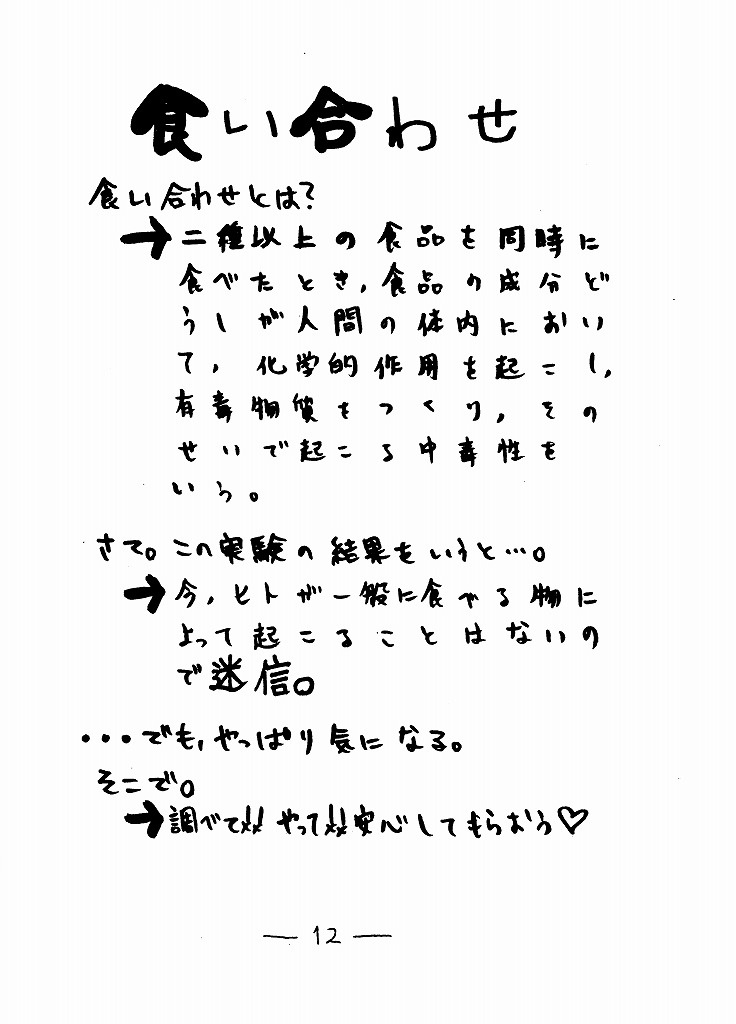 食い合わせ
食い合わせとは?
➔二種以上の食品を同時に
食べたとき,食品の成分ど
うしが人間の体内におい
て,化学的作用を起こし,
有毒物質をつくり,その
せいで起こる中毒性を
いう。
さて。この実験の結果をいうと…。
➔今,ヒトが一般に食べる物に
よって起こることはないの
で迷信。
・・・でも,やっぱり気になる。
そこで。
➔調べて!!やって!!安心してもらおう♡
— 12 —